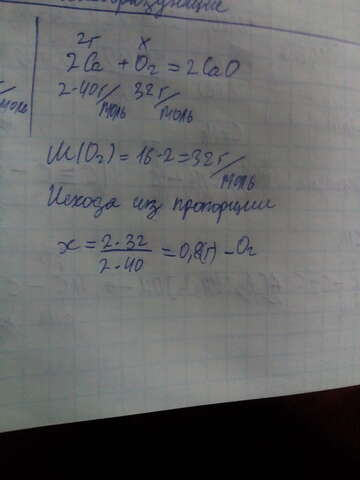 2г x
2Ca + O₂ = 2CaO
2·40г/моль 32г/моль
M(O₂) = 16·2 = 32г/моль
Исходя из пропорции
x = 2·32/2·40 = 0,8(г) – O₂